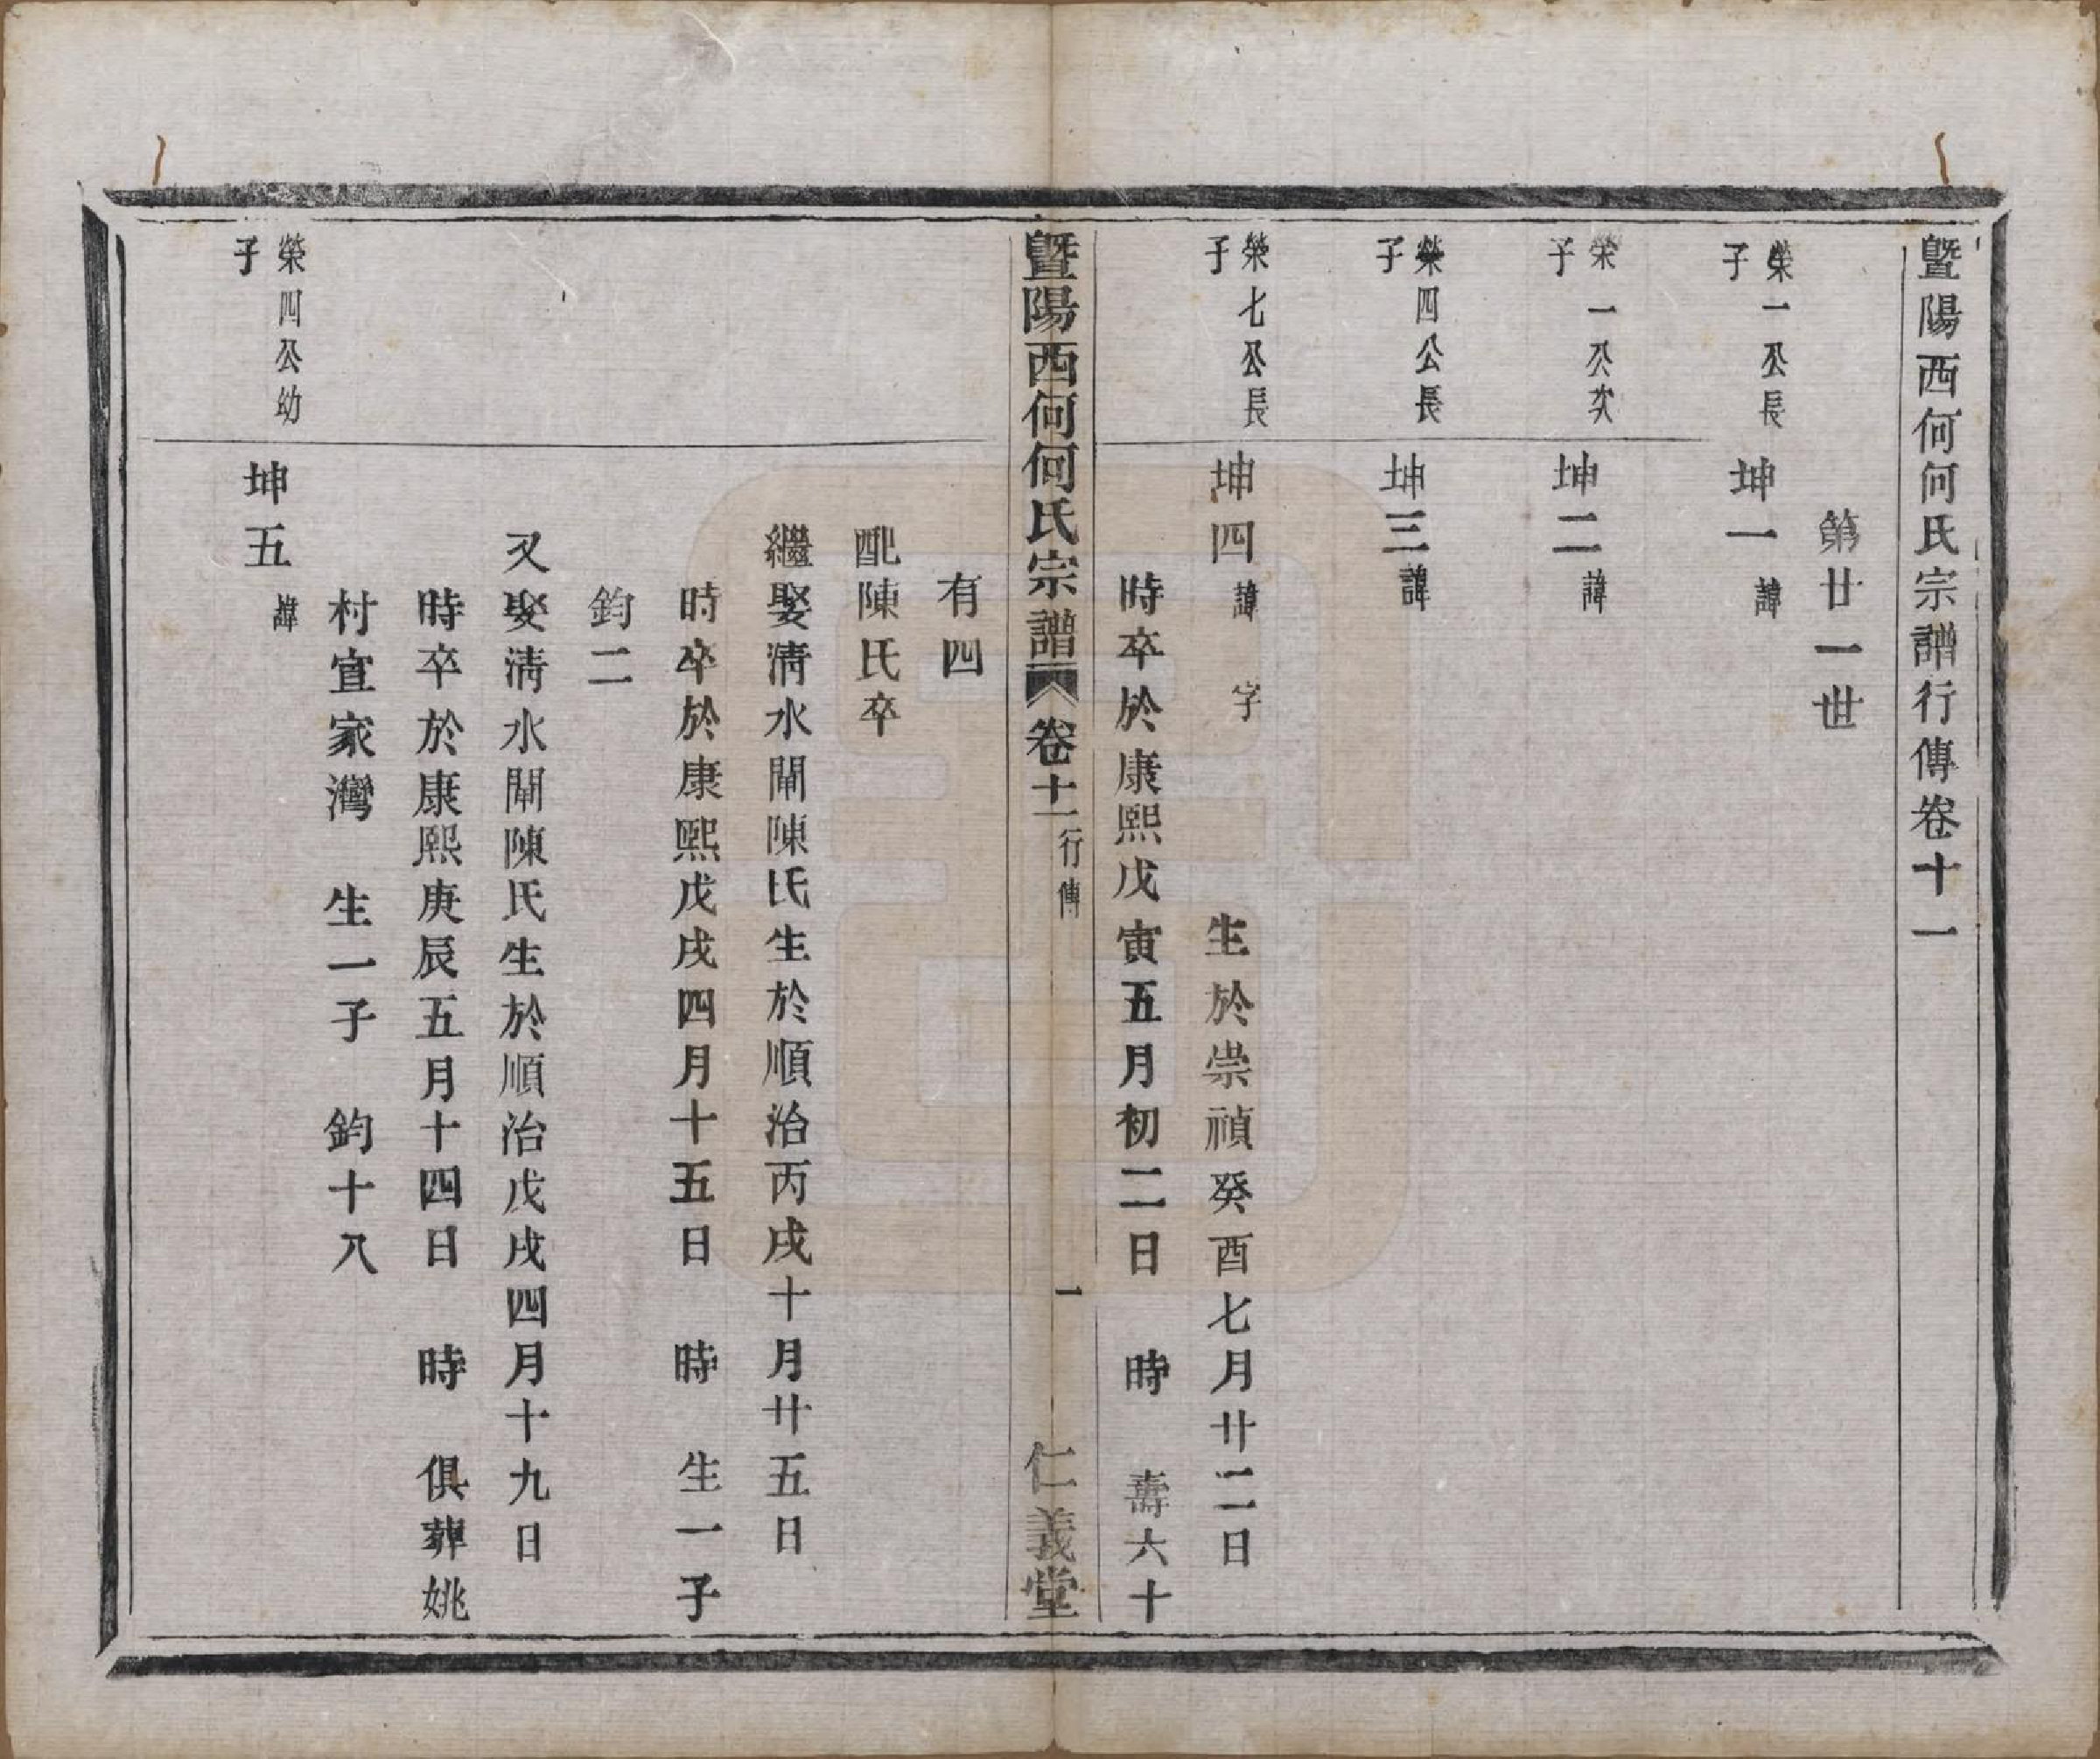 暨陽西何何氏宗譜行傳卷十一
第廿一世
榮一公長
子
坤一諱
榮一公次
子
坤二諱
榮四公長
子
坤三諱
榮七公長
子
坤四諱 字 生於崇禎癸酉七月廿二日
時卒於康熙戊寅五月初二日 時 壽六十
暨陽西何何氏宗譜 卷十一 行傳 一 仁義堂
有四
配陳氏卒
繼娶淸水閘陳氏生於順治丙戌十月廿五日
時卒於康熙戊戌四月十五日 時 生一子
鈞二
又娶淸水閘陳氏生於順治戊戌四月十九日
時卒於康熙庚辰五月十四日 時 俱葬姚
村宣家灣 生一子 鈞十八
榮四公幼
子
坤五諱